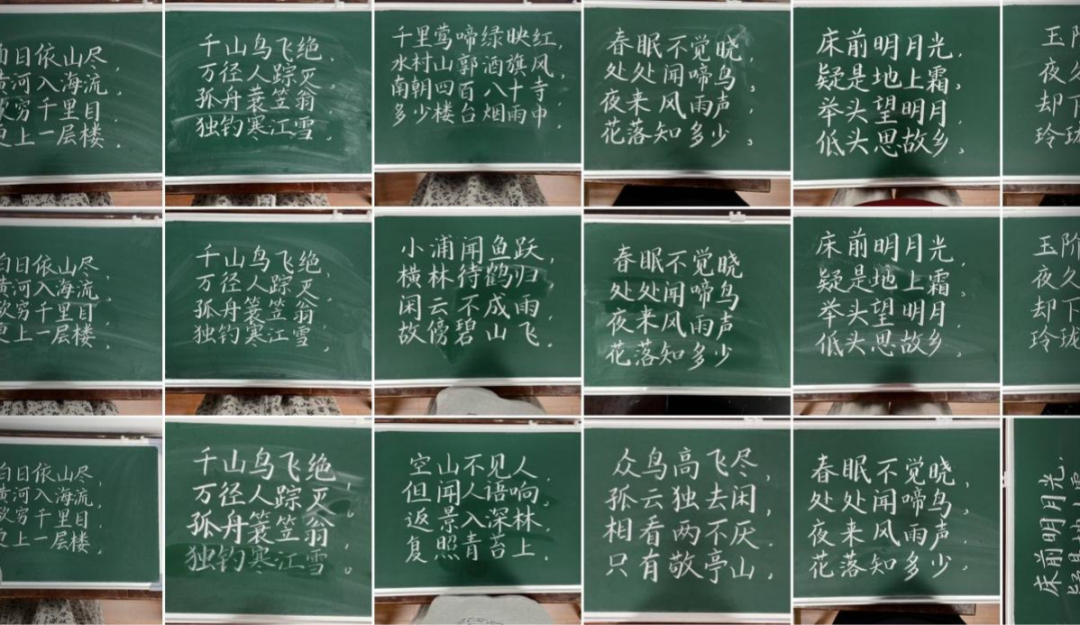 白日依山尽,
黄河入海流,
欲穷千里目.
更上一层楼.
千山鸟飞绝,
万径人踪灭.
孤舟蓑笠翁,
独钓寒江雪.
千里莺啼绿映红,
水村山郭酒旗风.
南朝四百八十寺,
多少楼台烟雨中.
春眠不觉晓,
处处闻啼鸟。
夜来风雨声,
花落知多少。
床前明月光,
疑是地上霜。
举头望明月,
低头思故乡。
玉阶
夜久
却下
玲珑
白日依山尽,
黄河入海流,
欲穷千里目.
更上一层楼.
千山鸟飞绝,
万径人踪灭.
孤舟蓑笠翁,
独钓寒江雪.
小浦闻鱼跃,
横林待鹤归.
闲云不成雨,
故傍碧山飞.
春眠不觉晓
处处闻啼鸟
夜来风雨声
花落知多少
床前明月光,
疑是地上霜
举头望明月.
低头思故乡.
玉阶
夜久
却下
玲珑
白日依山尽,
黄河入海流,
欲穷千里目.
更上一层楼.
千山鸟飞绝,
万径人踪灭.
孤舟蓑笠翁,
独钓寒江雪。
空山不见人,
但闻人语响.
返景入深林,
复照青苔上.
众鸟高飞尽,
孤云独去闲,
相看两不厌.
只有敬亭山.
春眠不觉晓,
处处闻啼鸟.
夜来风雨声.
花落知多少.
床前明月光.